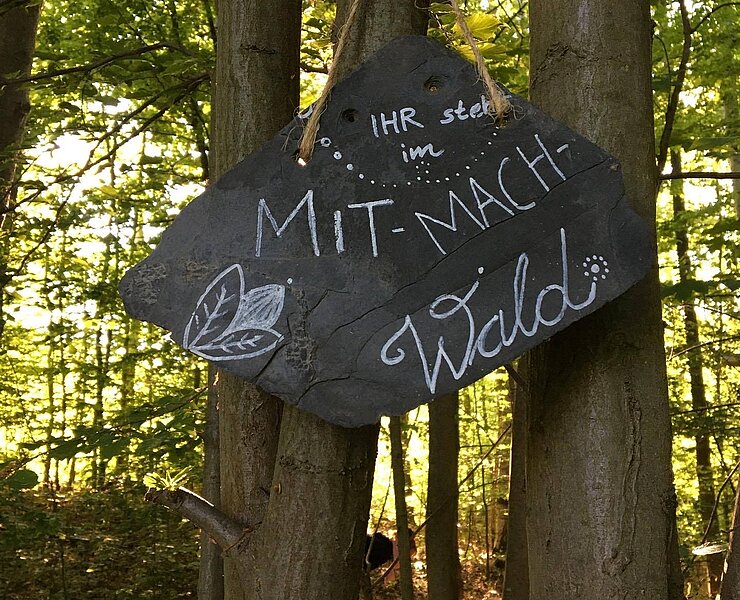 IHR steht
im
MIT-MACH-
Wald